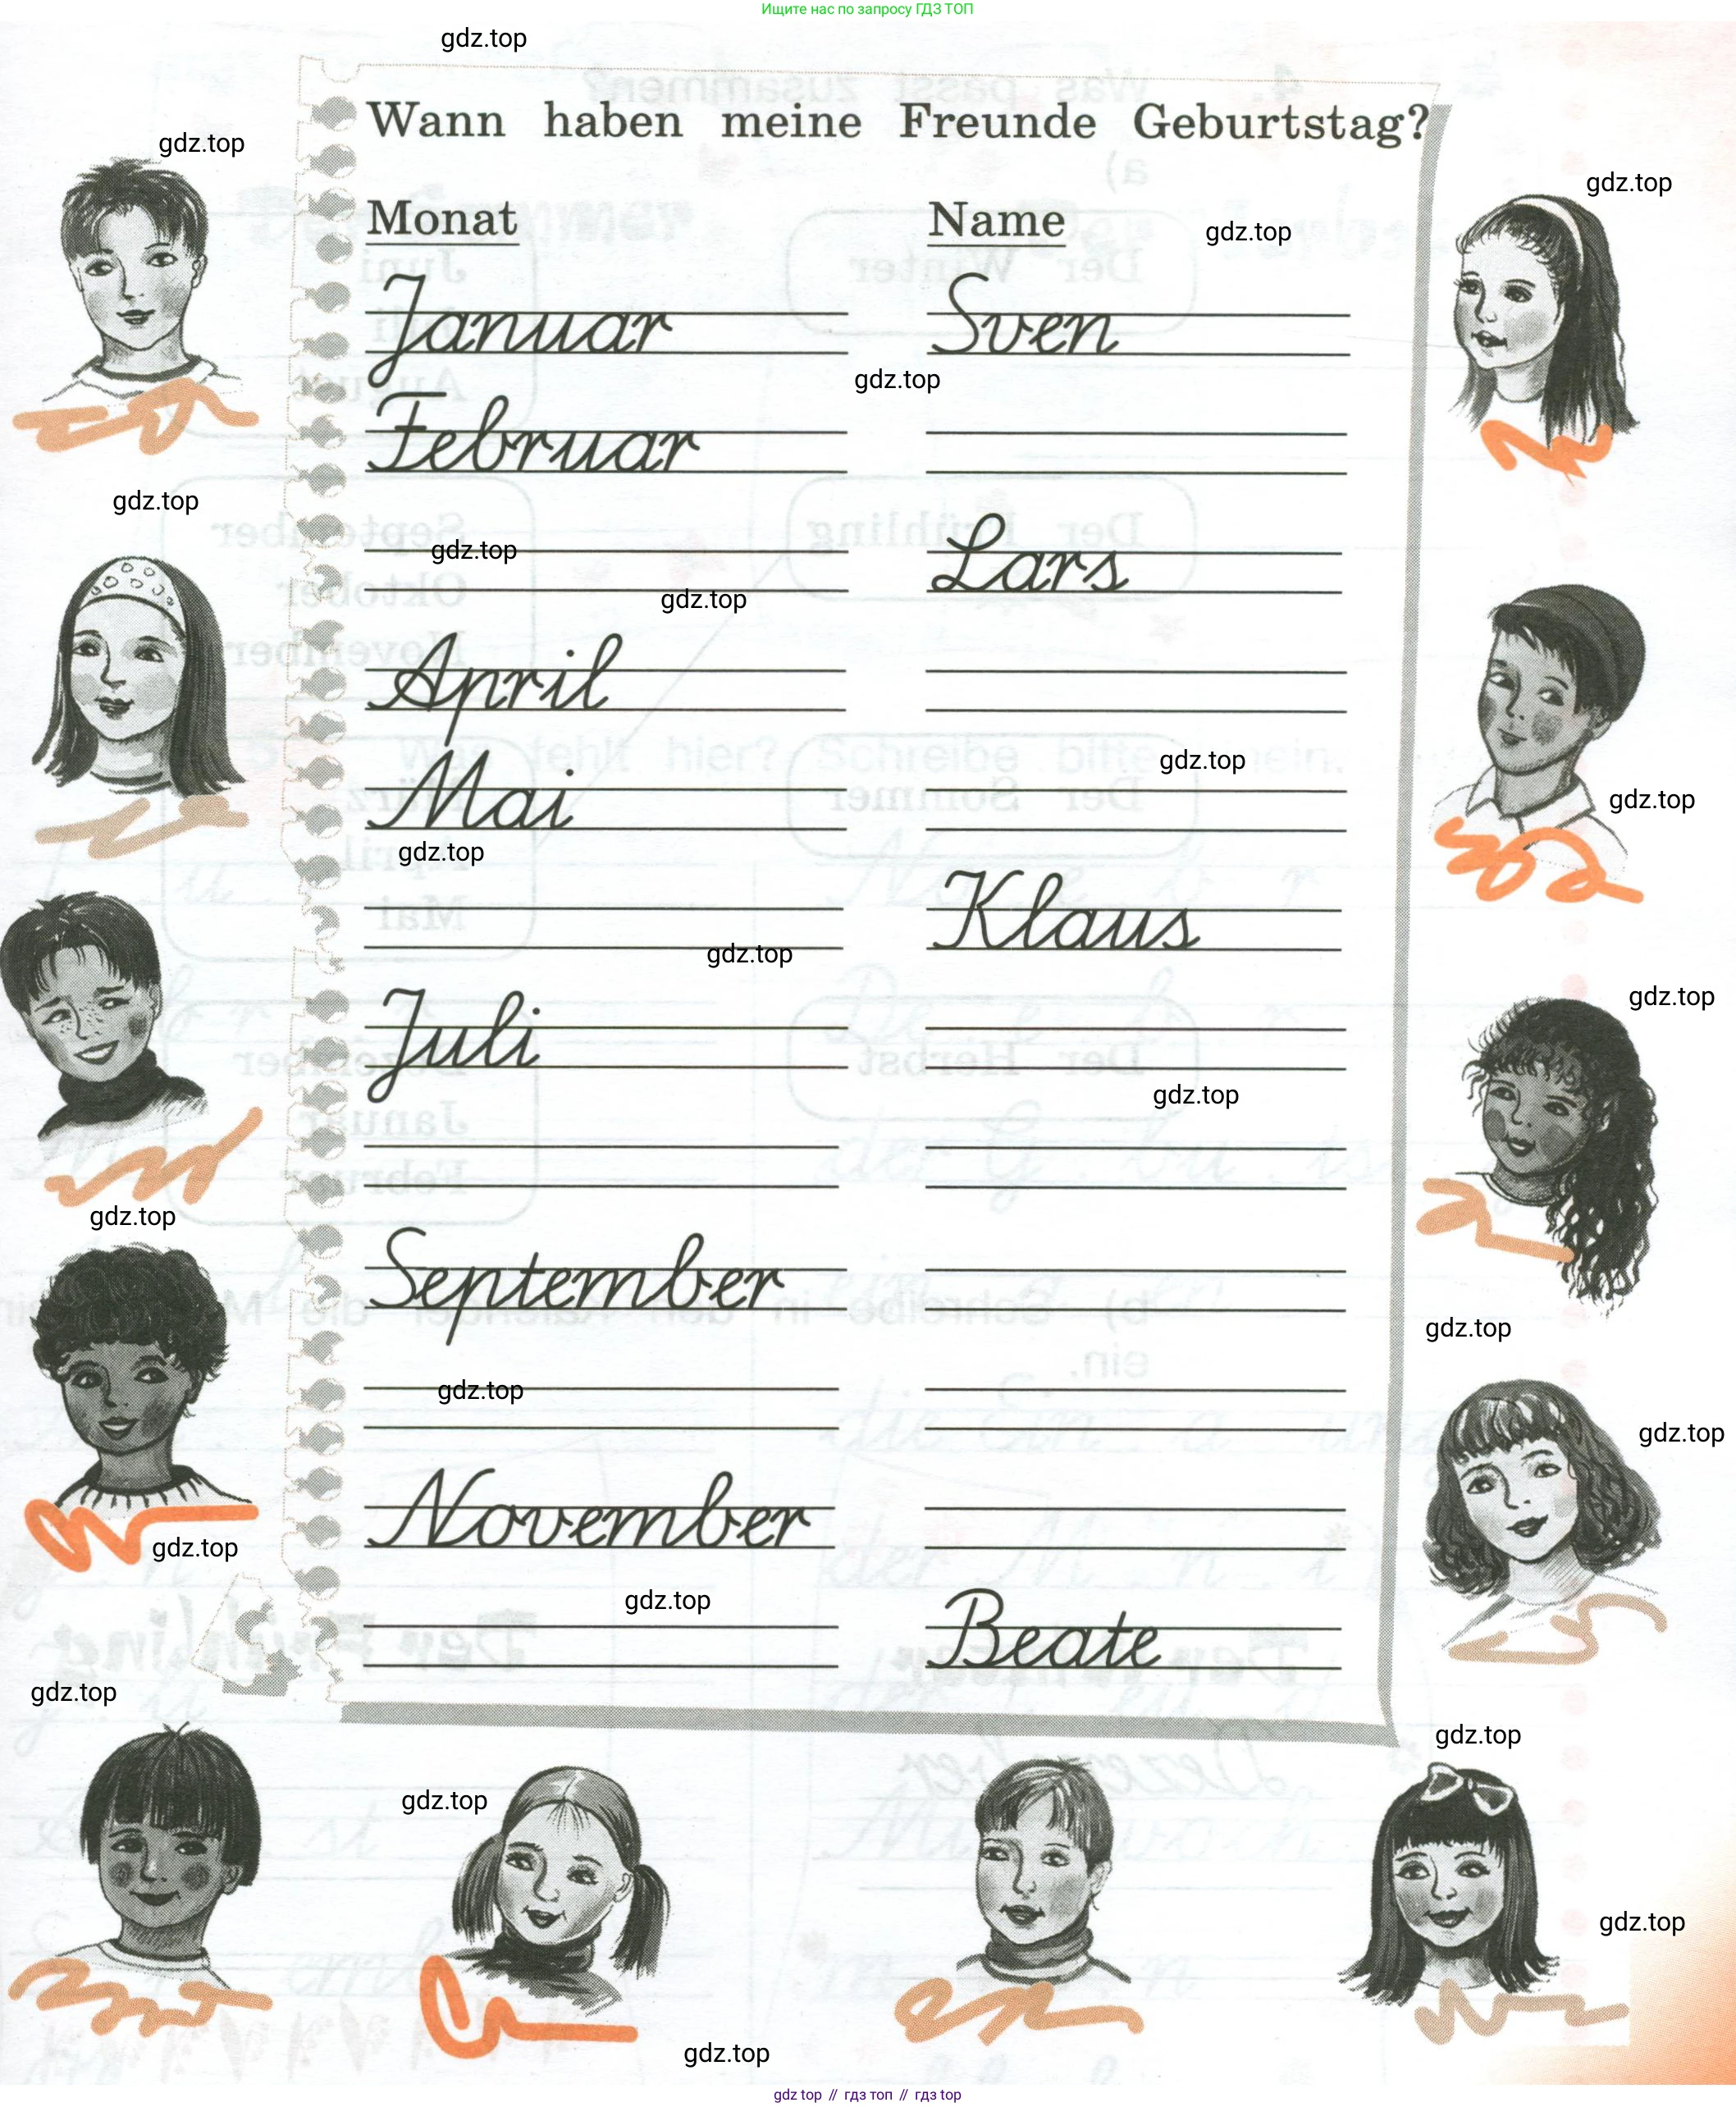 Ищите нас по запросу ГДЗ ТОП
gdz.top
Wann haben meine Freunde Geburtstag?
gdz.top
gdz.top
Monat Name
gdz.top
Januar Sven
gdz.top
Februar
gdz.top
gdz.top
Lars
gdz.top
April
gdz.top
Mai
gdz.top
gdz.top
Klaus
gdz.top
gdz.top
Juli
gdz.top
gdz.top
September
gdz.top
gdz.top
gdz.top
November
gdz.top
gdz.top
Beate
gdz.top
gdz.top
gdz.top
gdz.top
gdz.top
gdz top // гдз топ // гдз top